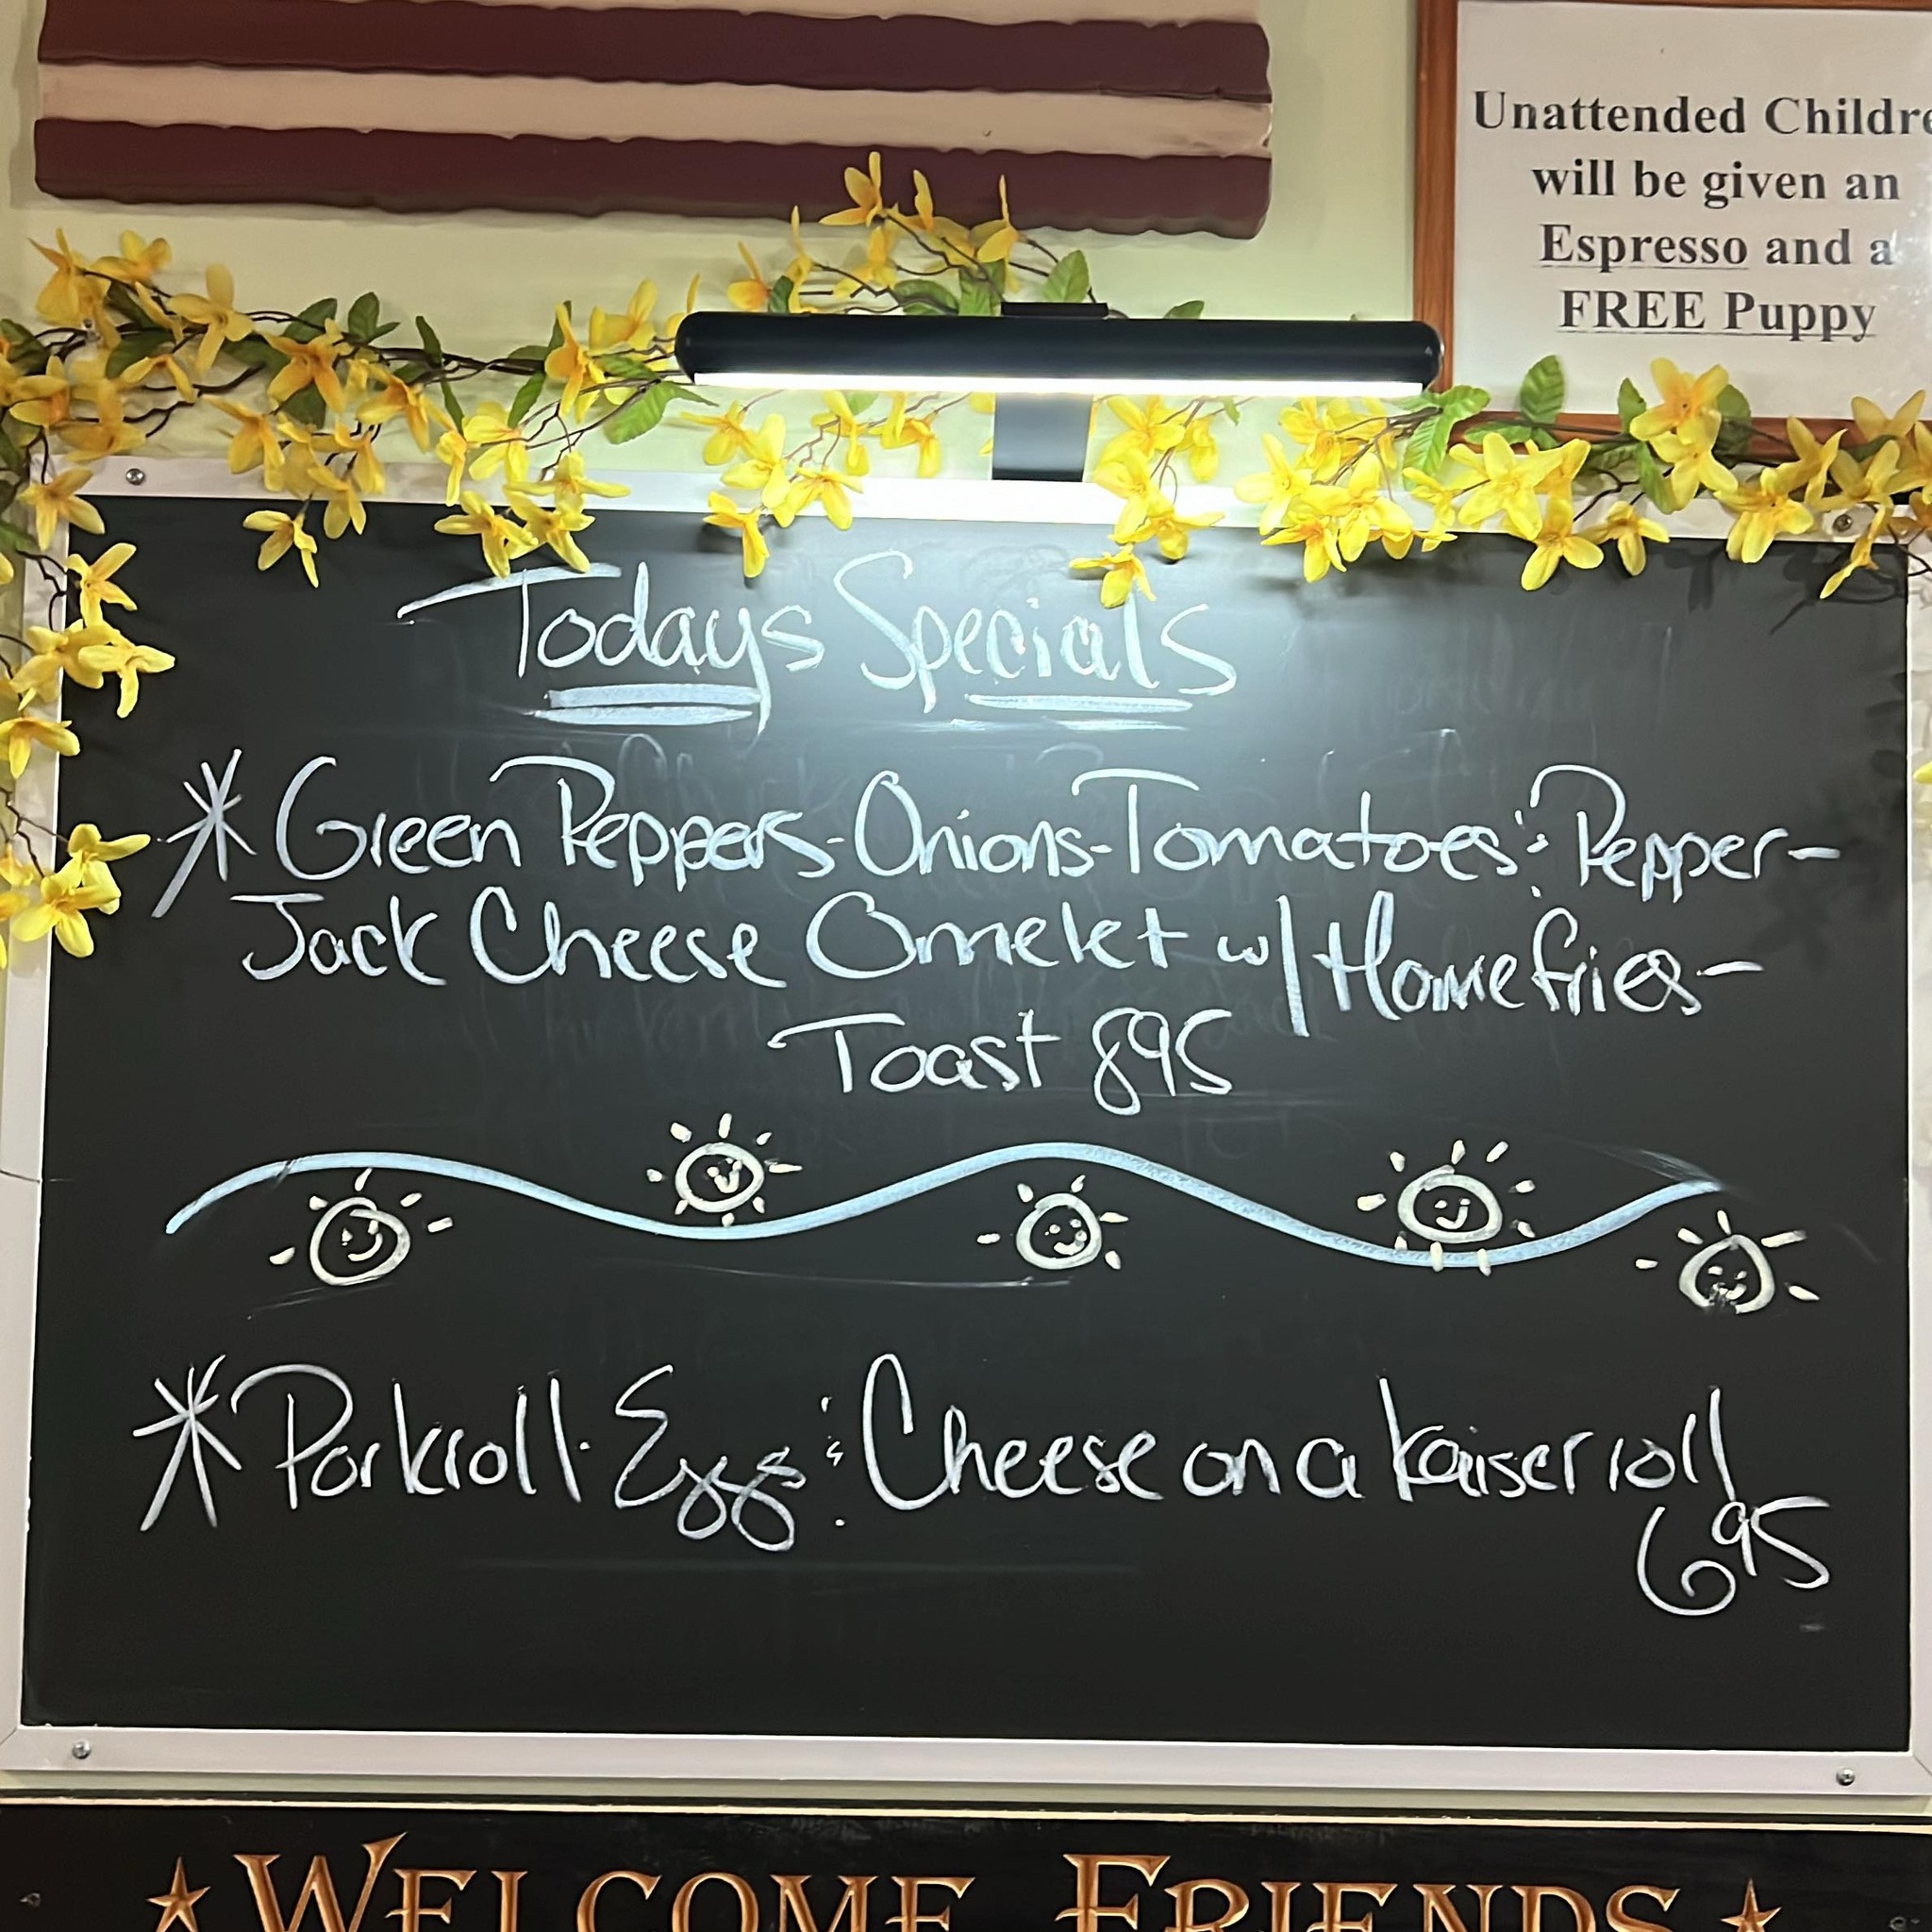 Unattended Childre
will be given an
Espresso and a
FREE Puppy
Todays Specials
* Green Peppers-Onions-Tomatoes & Pepper-
Jack Cheese Omelet w/ Homefries-
Toast 895
* Porkroll. Egg & Cheese on a kaiser roll
695
WELCOME FRIENDS